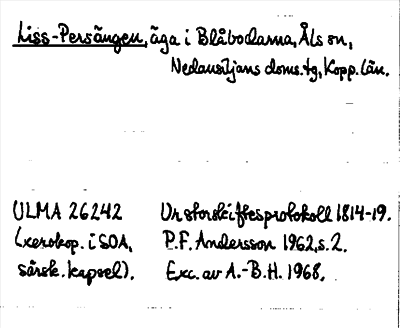 Liss-Persängen, äga i Blåbodarna, Åls sn,
Nedansiljans doms.tg, Kopp. län.
ULMA 26242 Ur storskiftesprotokoll 1814-19.
(xerokop. i SOA, P.F. Andersson 1962, s. 2.
särsk. kapsel). Exc. av A.-B.H. 1968.